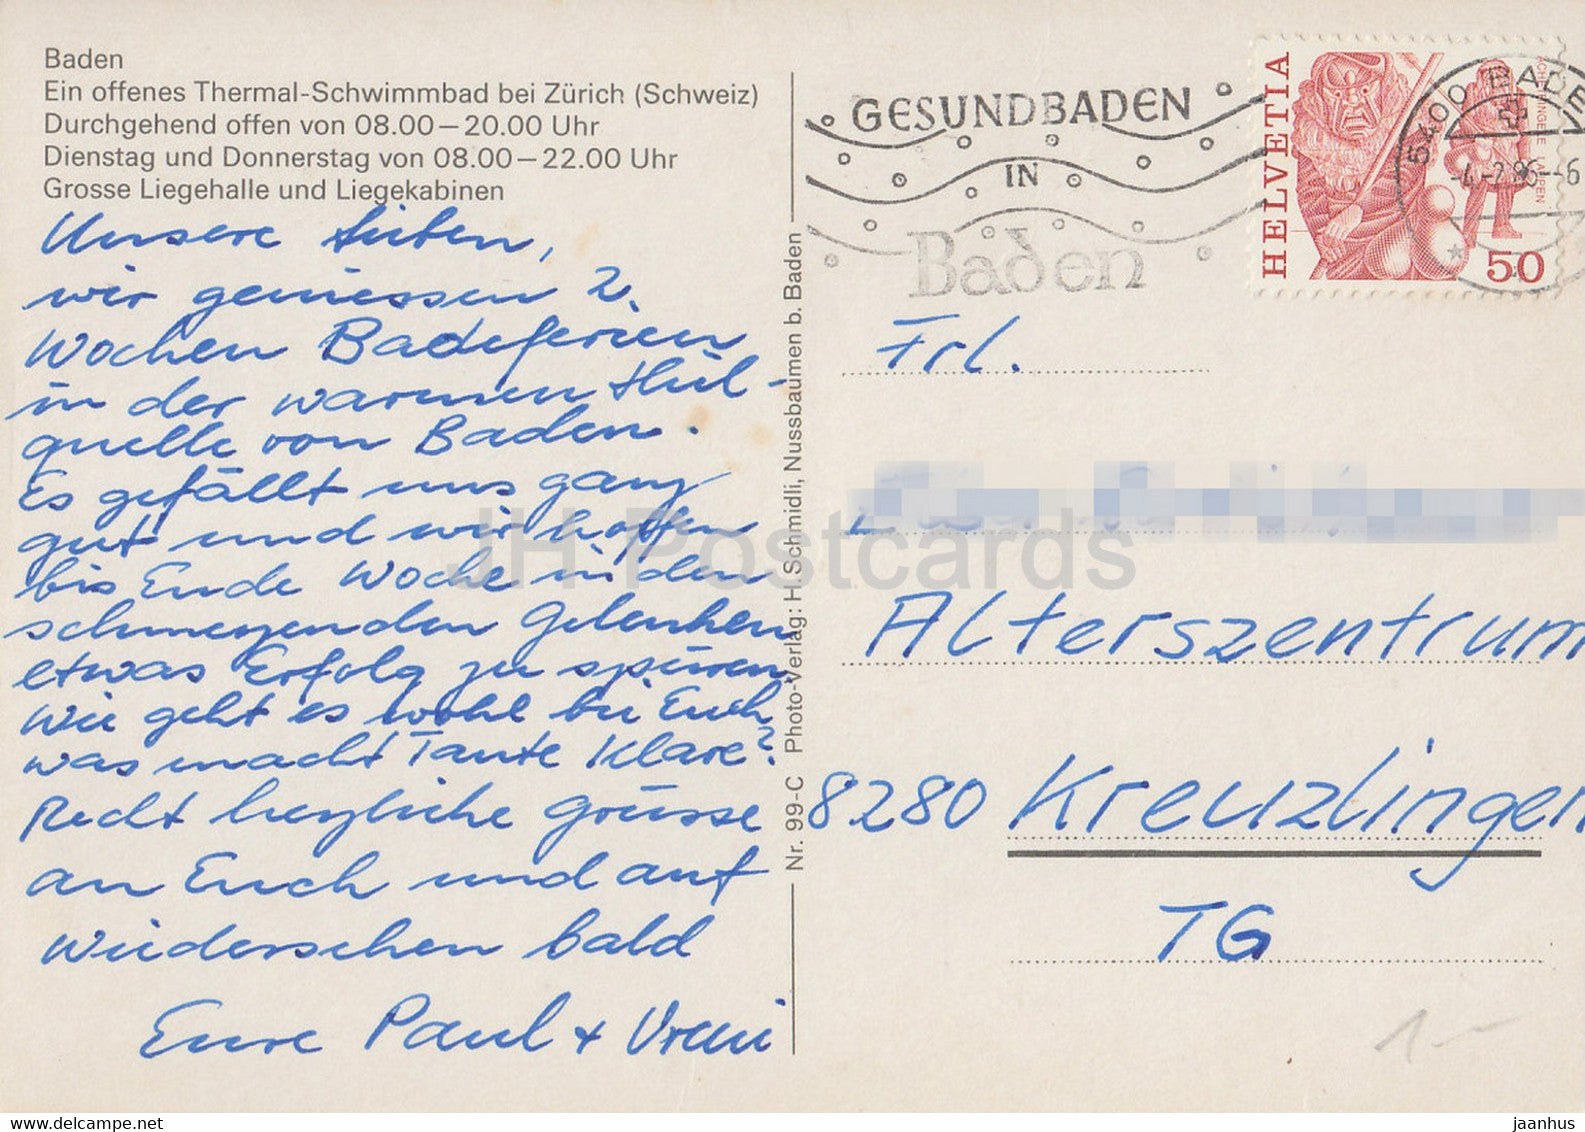 Baden
Ein offenes Thermal-Schwimmbad bei Zürich (Schweiz)
Durchgehend offen von 08.00—20.00 Uhr
Dienstag und Donnerstag von 08.00—22.00 Uhr
Grosse Liegehalle und Liegekabinen
Unsere Lieben,
wir geniessen 2.
Wochen Badeferien
in der warmen Heil-
quelle von Baden.
Es gefällt uns ganz
gut und wir hoffen
bis Ende Woche in den
schmerzenden Gelenken
etwas Erfolg zu spüren.
Wie geht es wohl bei Euch
was macht Tante Klare?
Recht herzliche Grüsse
an Euch und auf
Wiedersehen bald
Eure Paul + Vreni
Nr. 99-C Photo-Verlag: H. Schmidli, Nussbaumen b. Baden
GESUNDBADEN
IN
Baden
HELVETIA
50
5400 BADEN
-4.-2.86--6
Frl.
Alterszentrum
8280 Kreuzlingen
TG
1.-
JH Postcards
www.delcampe.net
jaanhus